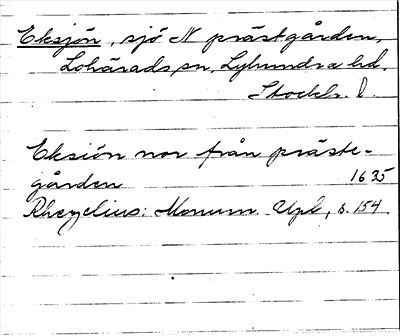 Eksjön, sjö N prästgården,
Lohärads sn, Lyhundra hd,
Stockh. l.
Eksiön nor från präste-
gården 1635
Rhezelius: Monum. Upl, s. 154